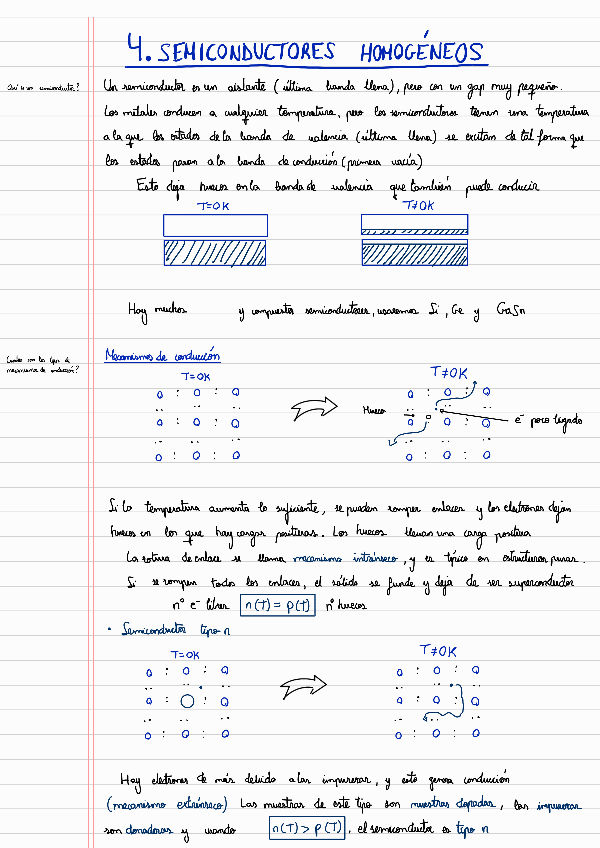 4. SEMICONDUCTORES HOMOGÉNEOS
Qué es un semiconductor?
Un semiconductor es un aislante (última banda llena), pero con un gap muy pequeño.
Los metales conducen a cualquier temperatura, pero los semiconductores tienen una temperatura
a la que los estados de la banda de valencia (última llena) se excitan de tal forma que
los estados pasan a la banda de conducción (primera vacía)
Esto deja huecos en la banda de valencia que también puede conducir
T=0K
T≠0K
Hay muchos y compuestos semiconductores, usaremos Si, Ge y GaSn
Cuáles son los tipos de
mecanismos de conducción?
Mecanismos de conducción
T=0K
T≠0K
Hueco
e⁻ poco ligado
Si la temperatura aumenta lo suficiente, se pueden romper enlaces y los electrones dejan
huecos en los que hay cargas positivas. Los huecos llevan una carga positiva
La rotura de enlace se llama mecanismo intrínseco, y es típico en estructuras puras.
Si se rompen todos los enlaces, el sólido se funde y deja de ser superconductor
nº e⁻ libres n(T) = p(T) nº huecos
• Semiconductor tipo n
T=0K
T≠0K
Hay electrones de más debido a las impurezas, y esto genera conducción
(mecanismo extrínseco) Las muestras de este tipo son muestras dopadas, las impurezas
son donadoras y cuando n(T) > p(T), el semiconductor es tipo n